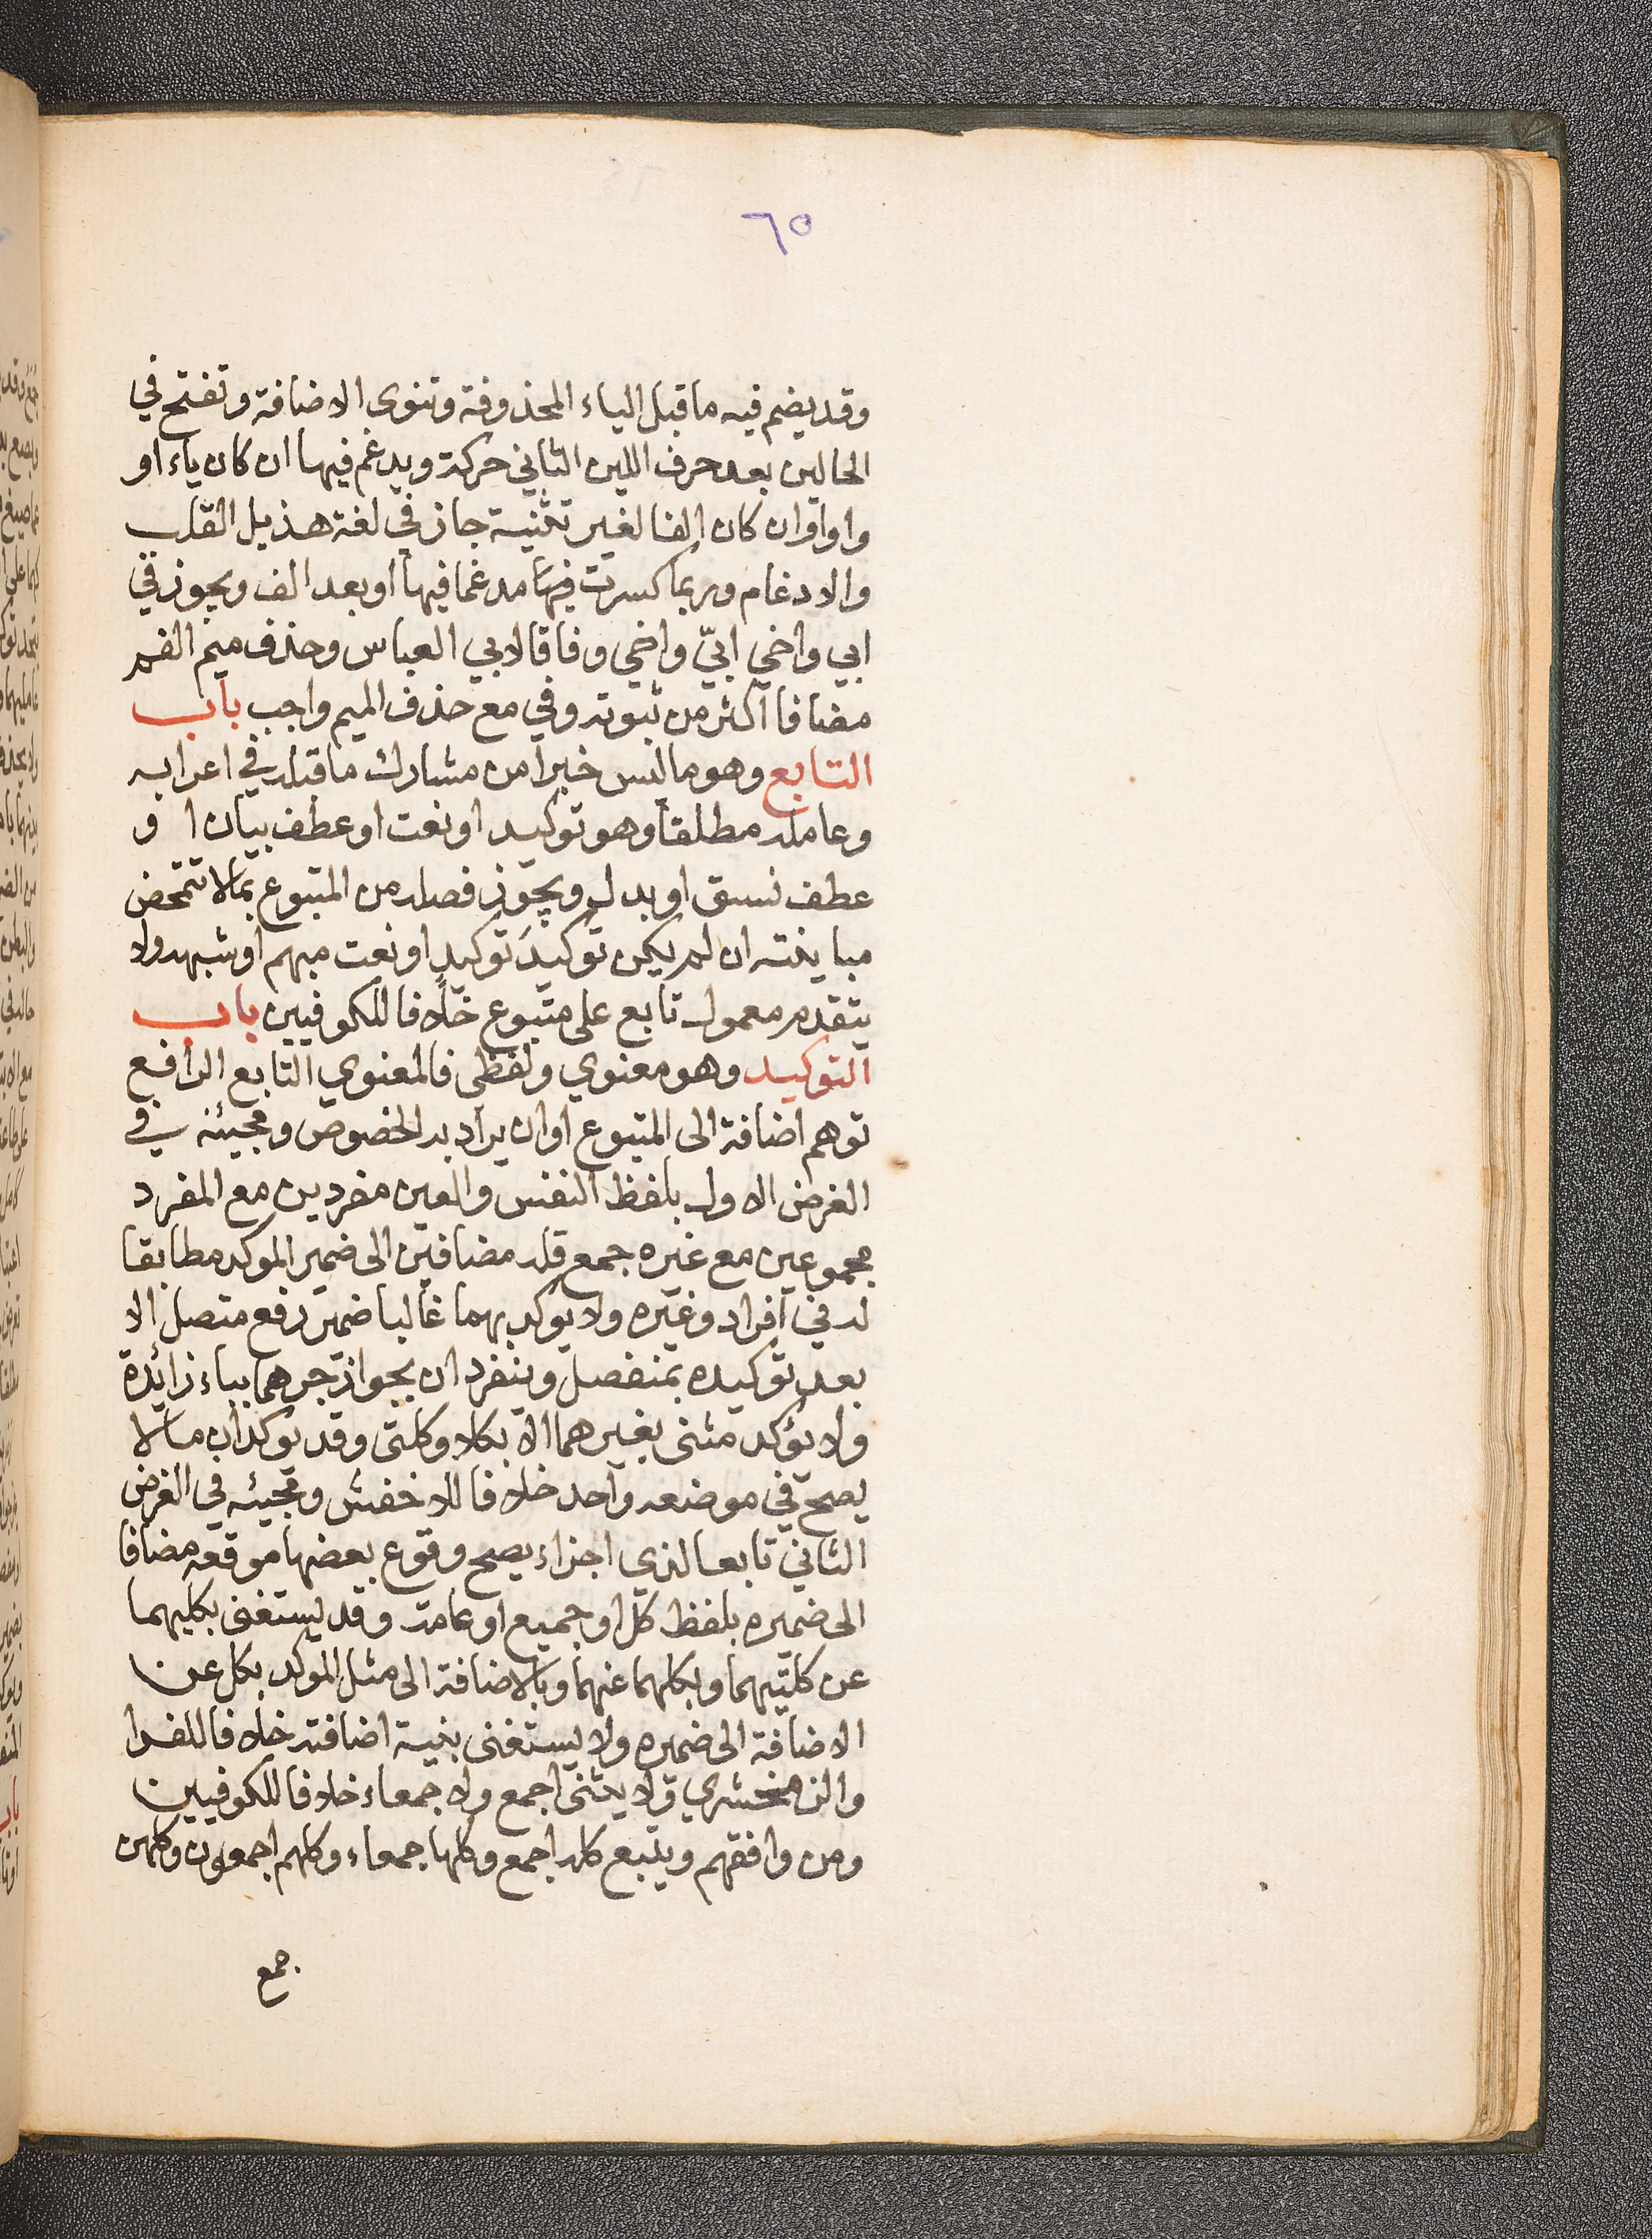 ٦٥
وقد يضم فيه ما قبل الياء المحذوفة وتنوى الاضافة وتفتح في
الحالين بعد حرف اللين التاني حركة ويدغم فيها ان كان ياء او
واوا وان كان الفا لغير تثنية جاز في لغة هذيل القلب
والادغام وربما كسرت فيها مدغما فيها او بعد الف ويجوز في
ابي واخي ابيّ واخي وفاقا لابي العباس وحذف ميم الفم
مضافا اكثر من ثبوته وفي مع حذف الميم واجب باب
التابع وهو ما ليس خبرا من مشارك ما قبله في اعرابه
وعامله مطلقا وهو توكيد او نعت او عطف بيان او
عطف نسق او بدل ويجوز فصله من المتبوع بما لا تتمحض
مباينته ان لم يكن توكيدَ توكيدٍ او نعت مبهم او شبهه ولا
يتقدم معمول تابع على متبوع خلافا للكوفيين باب
التوكيد وهو معنوي ولفظي فالمعنوي التابع الرافع
توهم اضافة الى المتبوع او ان يراد به الخصوص ومجيئه في
الغرض الاول بلفظ النفس والعين مفردين مع المفرد
مجموعين مع غيره جمع قله مضافين الى ضمير الموكد مطابقا
له في افراد وغيره ولا يوكد بهما غالبا ضمير رفع متصل الا
بعد توكيده بمنفصل وينفردان بجواز جرهما بباء زائدة
ولا يؤكد مثنى بغيرهما الا بكلا وكلتى وقد يوكدان ما لا
يصح في موضعه واحد خلافا للاخفش ومجيئه في الغرض
الثاني تابعا لذي اجزاء يصح وقوع بعضها موقعه مضافا
الى ضميره بلفظ كل او جميع او عامة وقد يستغنى بكليهما
عن كلتيهما وبكلهما عنهما وبالاضافة الى مثل الموكد بكل عن
الاضافة الى ضميره ولا يستغنى بنية اضافته خلافا للفرا
والزمخشري ولا يثنى اجمع ولا جمعاء خلافا للكوفيين
ومن وافقهم ويتبع كله اجمع وكلها جمعاء وكلهم اجمعون وكلهن
جمع